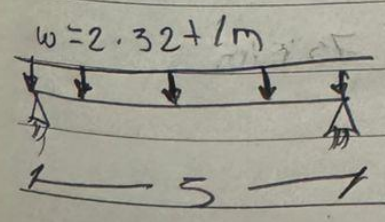 w=2.32t/m
5